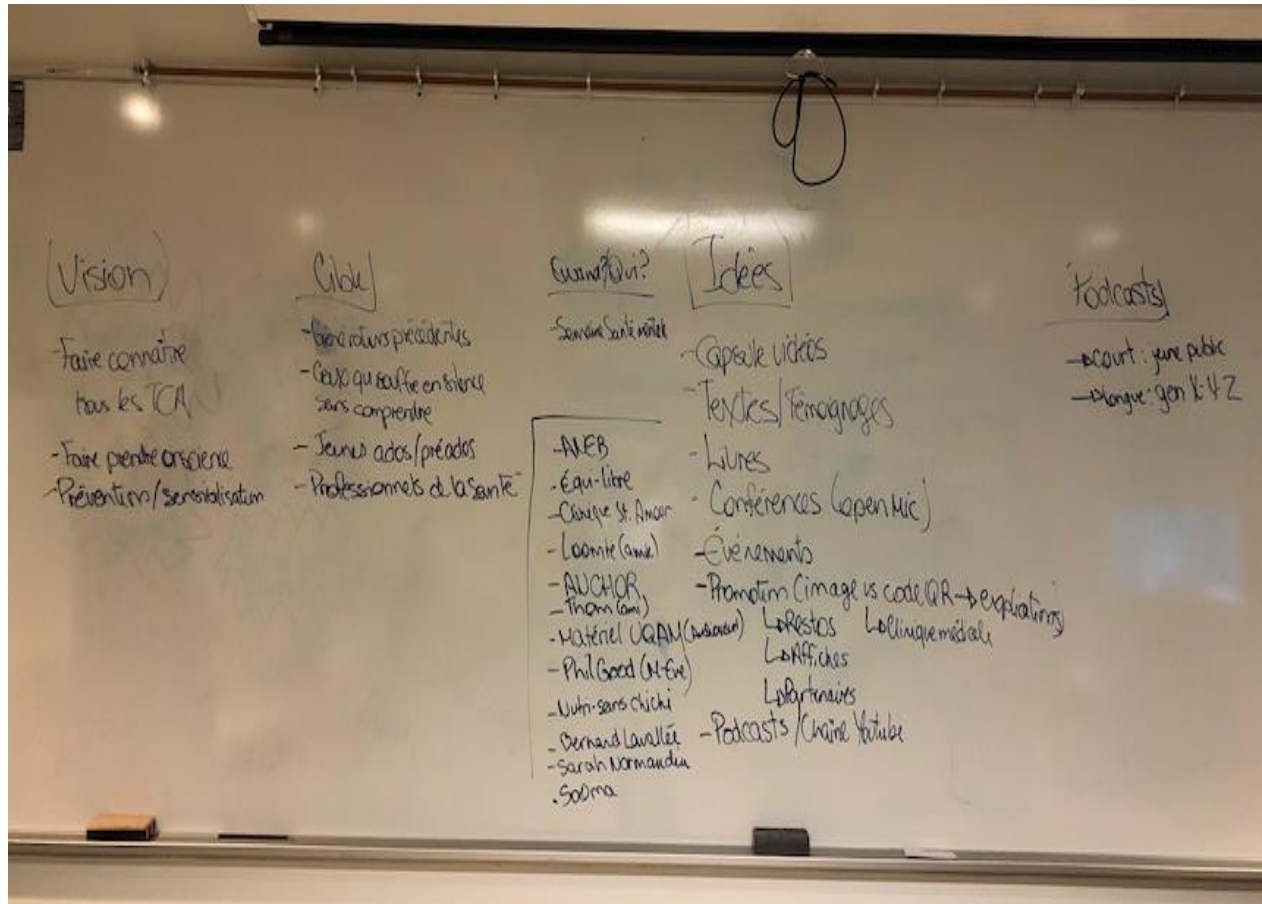 Vision
-Faire connaître
tous les TCA
-Faire prendre conscience
-Prévention/sensibilisation
Cible
-Générations précédentes
-Ceux qui souffre en silence
sans comprendre
-Jeunes ados/préados
-Professionnels de la santé
Quand?/Qui?
-Semaine Santé mentale
-ANEB
-Équi-libre
-Clinique St. Amour
-Loomie (amie)
-ANCHOR
-Thom (ami)
-Matériel UQAM
-Phil Good (M-Eve)
-Nutri-sans chichi
-Bernard Lavallée
-Sarah Normandin
Idées
-Capsule vidéos
-Textes/Témoignages
-Livres
-Conférences (open Mic)
-Événements
-Promotion (image vs code QR→explications)
↳Restos ↳Clinique médicale
↳Affiches
↳Partenaires
-Podcasts/Chaîne Youtube
Podcasts
→court : jeune public
→longue : gen X-Y-Z